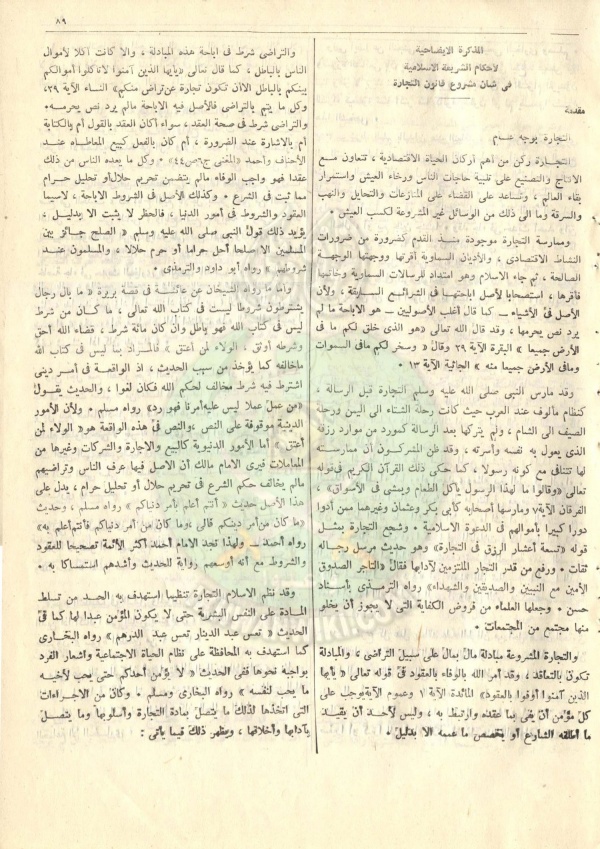 ٨٩
المذكرة الايضاحية
لاحكام الشريعة الاسلامية
فى شان مشروع قانون التجارة
مقدمة
التجارة بوجه عام
التجارة ركن من أهم أركان الحياة الاقتصادية ، تتعاون مع
الانتاج والتصنيع على تلبية حاجات الناس ورخاء العيش واستمرار
بقاء العالم ، وتساعد على القضاء على المنازعات والتحايل والنهب
والسرقة وما الى ذلك من الوسائل غير المشروعة لكسب العيش ٠
وممارسة التجارة موجودة منذ القدم كضرورة من ضرورات
النشاط الاقتصادى ، والأديان السماوية أقرتها ووجهتها الوجهة
الصالحة ، ثم جاء الاسلام وهو امتداد للرسالات السماوية وخاتمها
فأقرها ، استصحابا لأصل اباحتها فى الشرائع السابقة ، ولأن
الأصل فى الأشياء ــ كما قال أغلب الأصوليين ــ هو الاباحة ما لم
يرد نص يحرمها ، وقد قال الله تعالى «هو الذى خلق لكم ما فى
الأرض جميعا » البقرة الآية ٢٩ وقال « وسخر لكم مافى السموات
ومافى الأرض جميعا منه » الجاثية الآية ١٣ ٠
وقد مارس النبى صلى الله عليه وسلم التجارة قبل الرسالة ،
كنظام مألوف عند العرب حيث كانت رحلة الشتاء الى اليمن ورحلة
الصيف الى الشام ، ولم يتركها بعد الرسالة كمورد من موارد رزقه
الذى يعول به نفسه وأسرته ، وقد ظن المشركون أن ممارسته
لها تتنافى مع كونه رسولا ، كما حكى ذلك القرآن الكريم فى قوله
تعالى «وقالوا ما لهذا الرسول يأكل الطعام ويمشى فى الأسواق» ،
الفرقان الآية٧ ومارسها أصحابه كأبى بكر وعثمان وغيرهما ممن أدوا
دورا كبيرا بأموالهم فى الدعوة الاسلامية ٠ وشجع التجارة بمثل
قوله «تسعة أعشار الرزق فى التجارة» وهو حديث مرسل رجاله
ثقات ٠ ورفع من قدر التجار الملتزمين لآدابها فقال «التاجر الصدوق
الأمين مع النبيين والصديقين والشهداء» رواه الترمذى بأسناد
حسن ٠ وجعلها العلماء من فروض الكفاية التى لا يجوز أن يخلو
منها مجتمع من المجتمعات ٠
والتجارة المشروعة مبادلة مال بمال على سبيل التراضى ، والمبادلة
تكون بالتعاقد ، وقد أمر الله بالوفاء بالعقود فى قوله تعالى « يأيها
الذين آمنوا أوفوا بالعقود» المائدة الآية ١ وعموم الآيةيوجب على
كل مؤمن أن يفى بما عقده وارتبط به ، وليس لأحد أن يقيد
ما أطلقه الشارع أو يخصص ما عممه الا بدليل ٠
والتراضى شرط فى اباحة هذه المبادلة ، والا كانت أكلا لأموال
الناس بالباطل ، كما قال تعالى «يأيها الذين آمنوا لاتأكلوا أموالكم
بينكم بالباطل الاأن تكون تجارة عن تراض منكم» النساء الآية ٢٩،
وكل ما يتم بالتراضى فالأصل فيه الاباحة مالم يرد نص يحرمه٠
والتراضى شرط فى صحة العقد ، سواء أكان العقد بالقول أم بالكتابة
أم بالاشارة عند الضرورة ، أم كان بالفعل كبيع المعاطاه عند
الأحناف وأحمد «المغنى ج٦ص٤٤» ٠ وكل ما يعده الناس من ذلك
عقدا فهو واجب الوفاء مالم يتضمن تحريم حلال أو تحليل حرام
مما ثبت فى الشرع ٠ وكذلك الأصل فى الشروط الاباحة ، لاسيما
العقود والشروط فى أمور الدنيا ، فالحظر لا يثبت الا بدليل ،
يؤيد ذلك قول النبى صلى الله عليه وسلم « الصلح جائز بين
المسلمين الا صلحا أحل حراما أو حرم حلالا ، والمسلمون عند
شروطهم » رواه أبو داود والترمذى ٠
وأما ما رواه الشيخان عن عائشة فى قصة بريرة « ما بال رجال
يشترطون شروطا ليست فى كتاب الله تعالى ، ما كان من شرط
ليس فى كتاب الله فهو باطل وأن كان مائة شرط ، قضاء الله أحق
وشرطه أوثق ، الولاء لمن أعتق ٠» فالمراد بما ليس فى كتاب الله
ماخالفه كما يؤخذ من سبب الحديث ، اذ الواقعة فى أمر دينى
اشترط فيه شرط مخالف لحكم الله فكان لغوا ، والحديث يقول
«من عمل عملا ليس عليه أمرنا فهو رد» رواه مسلم ٠ ولأن الأمور
الدينية موقوفة على النص ،والنص فى هذه الواقعة هو «الولاء لمن
أعتق » أما الأمور الدنيوية كالبيع والاجارة والشركات وغيرها من
المعاملات فيرى الامام مالك أن الاصل فيها عرف الناس وتراضيهم
مالم يخالف حكم الشرع فى تحريم حلال أو تحليل حرام ، يدل على
هذا الأصل حديث « أنتم أعلم بأمر دنياكم » رواه مسلم ، وحديث
«ما كان من أمر دينكم فالى ،وما كان من أمر دنياكم فأنتم أعلم به»
رواه أحمد ــ ولهذا تجد الامام أحمد أكثر الأئمة تصحيحا للعقود
والشروط مع أنه أوسعهم رواية للحديث وأشدهم استمساكا به ٠
وقد نظم الاسلام التجارة تنظيما استهدف به الحد من تسلط
المادة على النفس البشرية حتى لا يكون المؤمن عبدا لها كما فى
الحديث « تعس عبد الدينار تعس عبد الدرهم » رواه البخارى
كما استهدف به المحافظة على نظام الحياة الاجتماعية واشعار الفرد
بواجبه نحوها ففى الحديث « لا يؤمن أحدكم حتى يحب لأخيه
ما يحب لنفسه » رواه البخارى ومسلم ٠ وكان من الاجراءات
التى اتخذها لذلك ما يتصل بمادة التجارة وأسلوبها وما يتصل
بآدابها وأخلاقها ، ويظهر ذلك فيما يأتى :